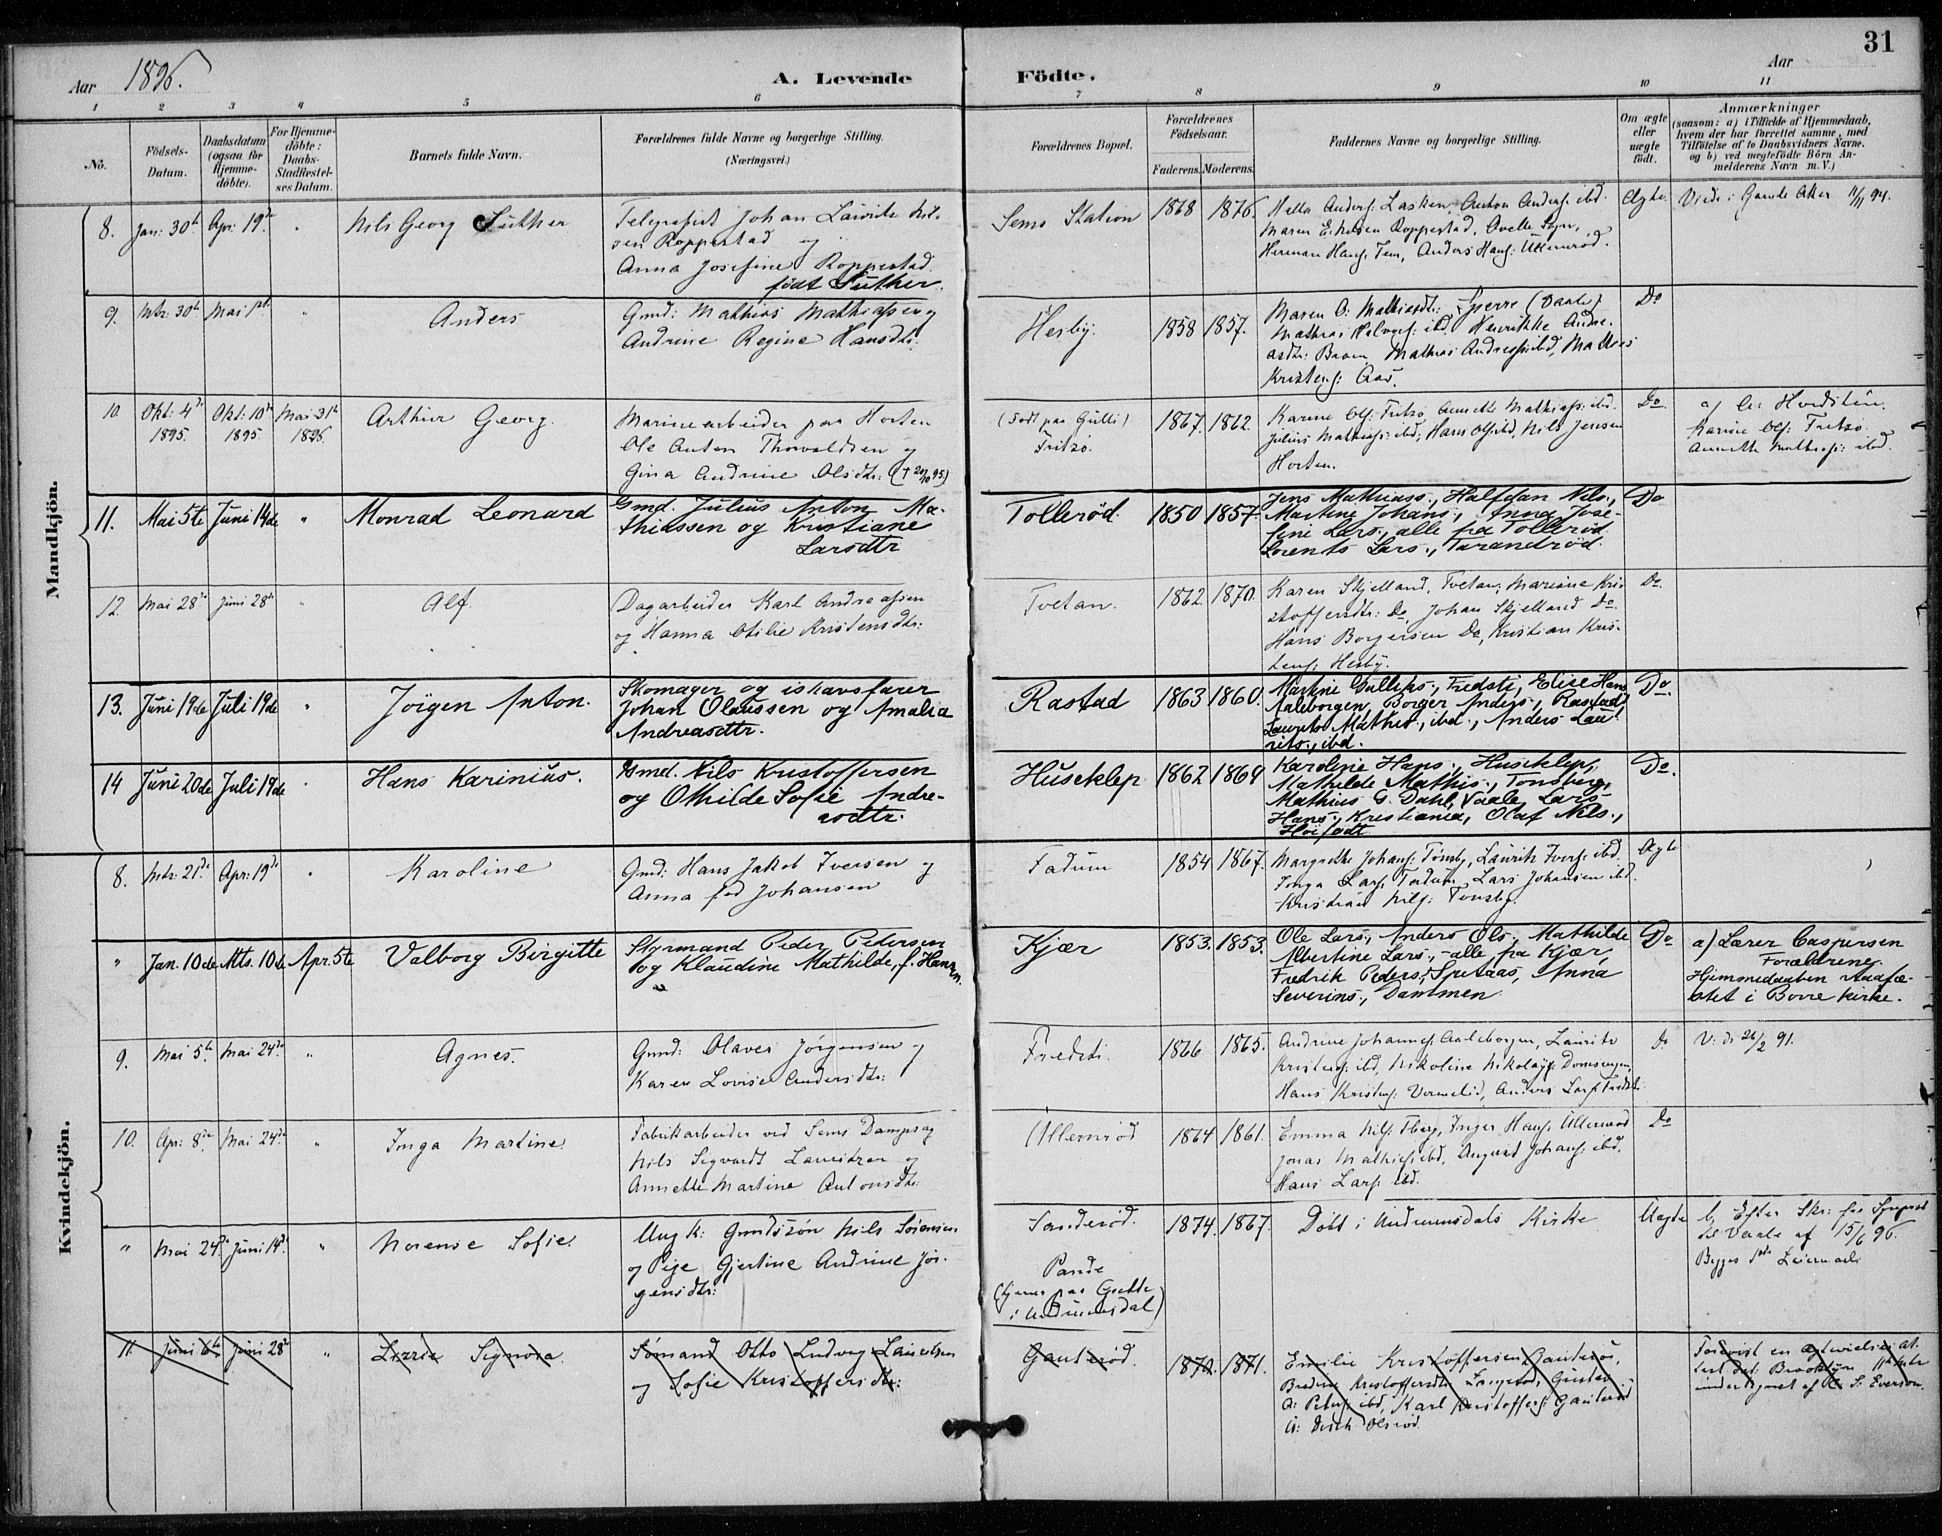 31
Aar 1896.
A. Levende Födte.
Aar
1 2 3 4 5 6 7 8 9 10 11
No.
Födsels-Datum.
Daabsdatum (ogsaa for Hjemme-döbte).
For Hjemme-döbte: Daabs-Stadfæstel-ses Datum.
Barnets fulde Navn.
Forældrenes fulde Navne og borgerlige Stilling. (Næringsvei.)
Forældrenes Bopæl.
Forældrenes Födselsaar.
Faderens. Moderens.
Faddernes Navne og borgerlige Stilling.
Om ægte eller uægte födt.
Anmærkninger
(saasom: a) i Tilfælde af Hjemmedaab,
hvem der har forrettet samme, med
Tilföielse af to Daabsvidners Navne,
og b) ved uægtefödte Börn An-
melderens Navn m. V.)
Mandkjön.
8. Jan: 30te Apr: 19de " Nils Georg Suther
Telegrafist Johan Lauritz Nil-
sen Roppestad og
Anna Josefine Roppestad
født Suther.
Sems Station 1868 1876.
Maren Roppestad,
Herman Hans: Fem, Anders Hans: Ullernrød.
Ægte. Viede i Gamle Aker 11/11 94.
9. Mts: 30te Mai 1ste " Anders
Gmd: Mathias Mathiassen og
Andrine Regine Hansdtr.
Hesby. 1858 1857.
Maren O: Mathiasdtr: Sperre (Vaale)
Mathias ibd, Henrikke Andre-
asdtr: Braaen, Mathias Andreass: ibd, Mathias
Kristens: Aas.
Do
10. Okt: 4de 1895. Okt: 10de 1895 Mai 31te 1896. Arthur Georg.
Marinearbeider paa Horten
Ole Anton Thorvaldsen og
Gina Andrine Olsdtr: († 20/10 95)
(Født paa Gulli)
Fritzø. 1867. 1862.
Karine Ols: Fritzø Annette Mathias: ibd.
Julius Mathias: ibd, Hans Ols: ibd, Nils Jensen
Horten.
Do.
a)
Karine Ols: Fritzø
Annette Mathias: ibd.
11. Mai 5te Juni 14de " Monrad Leonard
Gmd. Julius Anton Ma-
thiassen og Kristiane
Larsdtr
Tollerød. 1850 1857.
Jens Mathiass., Halfdan Nils.,
Martine Johans., Anna Jose-
fine Lars., alle fra Tollerød
Lorents Lars., Tarandrød.
Do
12. Mai 28de Juni 28de " Alf
Dagarbeider Karl Andreassen
og Hanna Otilie Kristensdtr:
Tvetan. 1862 1870.
Karen Skjelland, Tvetan, Mariane Kri-
stoffersdtr: Do, Johan Skjelland Do
Hans Borgersen Do, Kristian Kris-
tens: Hesby.
Do.
13. Juni 19de Juli 19de " Jörgen Anton.
Skomager og ishavsfarer
Johan Olaussen og Amalia
Andreasdtr.
Rastad 1863 1860.
Martine Gulliks., Fredsti, Elise Hans
Aaleborgen, Borger Anders., Rastad
Laurits Mathis., ibd., Anders Lau-
rits., ibd.
Do.
14 Juni 20de Juli 19de " Hans Karinius.
Gmd. Nils Kristoffersen
og Othilde Sofie Andre-
asdtr.
Huseklep 1862 1869
Karoline Hans., Huseklep,
Mathilde Mathis., Tonsberg,
Mathius G. Dahl, Vaale, Lars
Hans., Kristiania, Olaf Nils.,
Høifødt
Do.
Kvindekjön.
8. Mts: 21de Apr: 19de " Karoline
Gmd: Hans Jakob Iversen og
Anna fød Johansen
Fadum 1854 1867.
Margrethe Johans: Tønsbg, Lauritz Ivers: ibd.
Inga Lars: Fadum, Lars Johansen ibd.
Kristian Nils: Tønsbg.
Ægte
" Jan. 10de Mts. 10de Apr. 5te Valborg Birgitte
Styrmand Peder Pedersen
og Klaudine Mathilde, f. Hansen.
Kjær 1853. 1853.
Ole Lars., Anders Ols., Mathilde
Albertine Lars., alle fra Kjær,
Fredrik Peders., Spetaas, Anna
Severins., Dammen
Do
a) Lærer Caspersen
Forældrene.
Hjemmedaaben stadfæ-
stet i Borre kirke.
9. Mai 5te Mai 24de " Agnes.
Gmd: Olaves Jørgensen og
Karen Lovise Andersdtr:
Fredsti. 1866 1865.
Andrine Johannes: Aaleborgen, Lauritz
Kristens: ibd, Nikoline Nikolays:
Hans Kristens: ibd, Anders Lars: Fredsti
Do V: d: 26/2 91.
10. Apr: 8de Mai 24de " Inga Martine
Fabrikarbeider ved Sems Dampsag
Nils Sigvardt Lauritzen og
Annette Martine Antonsdtr:
Ullernrød 1864 1861.
Emma Nils: Tbørg, Inger Hans: Ullernrød
Jonas Mathis: ibd, August Johans: ibd.
Hans Lars: ibd.
Do
" Mai 24de Juni 14de " Norense Sofie.
Ung K: Gmdssøn Nils Sørensen
og Pige Gjertine Andrine Jør-
gensdtr:
Sanderød.
Pande
(tjener paa Grette
i Undrumsdal)
1874. 1867.
Døbt i Undrumsdals Kirke
Uægte
b) Efter Skr: fra Sognepr
til Vaale af 15/6 96.
Begges 1ste Leiermaal
11. Juni 6te Juni 28de " Lizzie Signora
Sømand Otto Ludvig Lauritzen
og Sofie Kristoffersdtr:
Gauterød. 1870. 1871.
Emilie Kristoffersen Gauterød,
Kristoffersdtr: Gustav
A: Peters: ibd, Karl Kristoffers: Gauterød
A: Olsrød
Forevist en
test dat: Brooklyn
undertegnet af S: Everson.